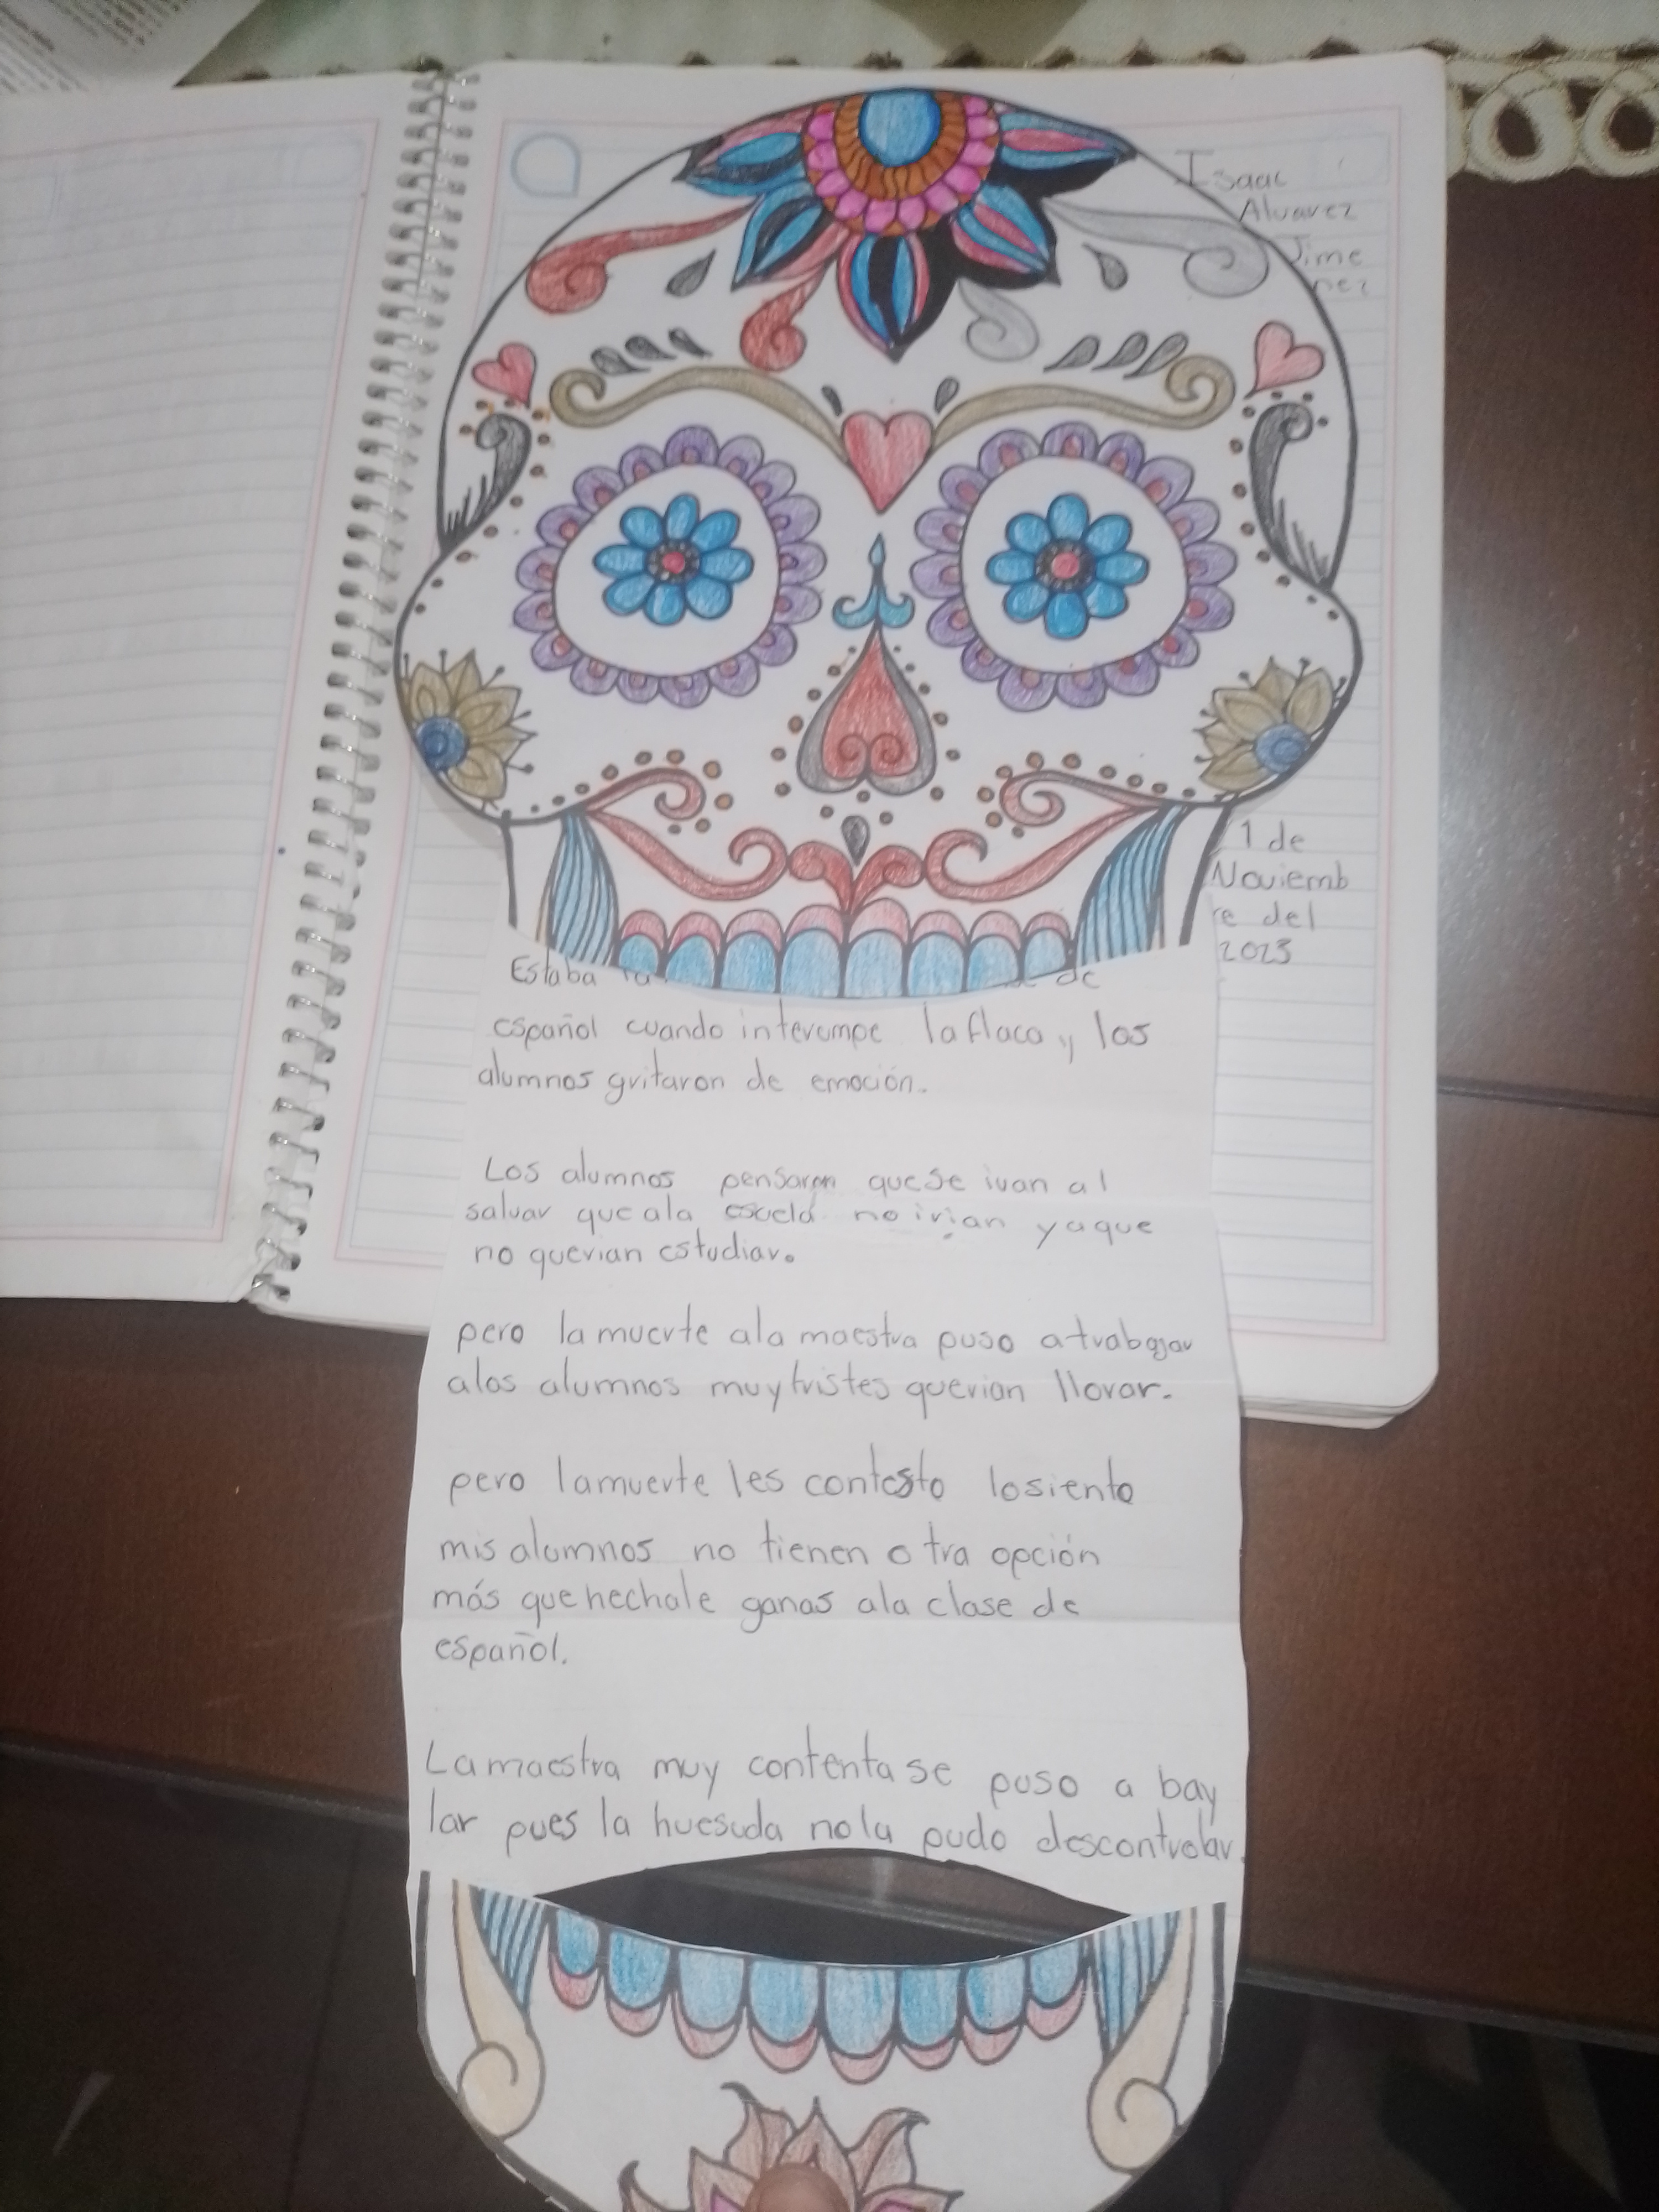 Isaac
Alvarez
Jime
nez
1 de
Noviemb
re del
2023
Estaba la de
español cuando interumpe la flaca y los
alumnos gritaron de emoción.
Los alumnos pensaron que se ivan al
salvar que ala escuela no irian ya que
no querian estudiar.
pero la muerte ala maestra puso a trabajar
alos alumnos muy tristes querian llorar.
pero la muerte les contesto lo siento
mis alumnos no tienen otra opción
más que hechale ganas ala clase de
español.
La maestra muy contenta se puso a bay
lar pues la huesuda no la pudo descontrolar.